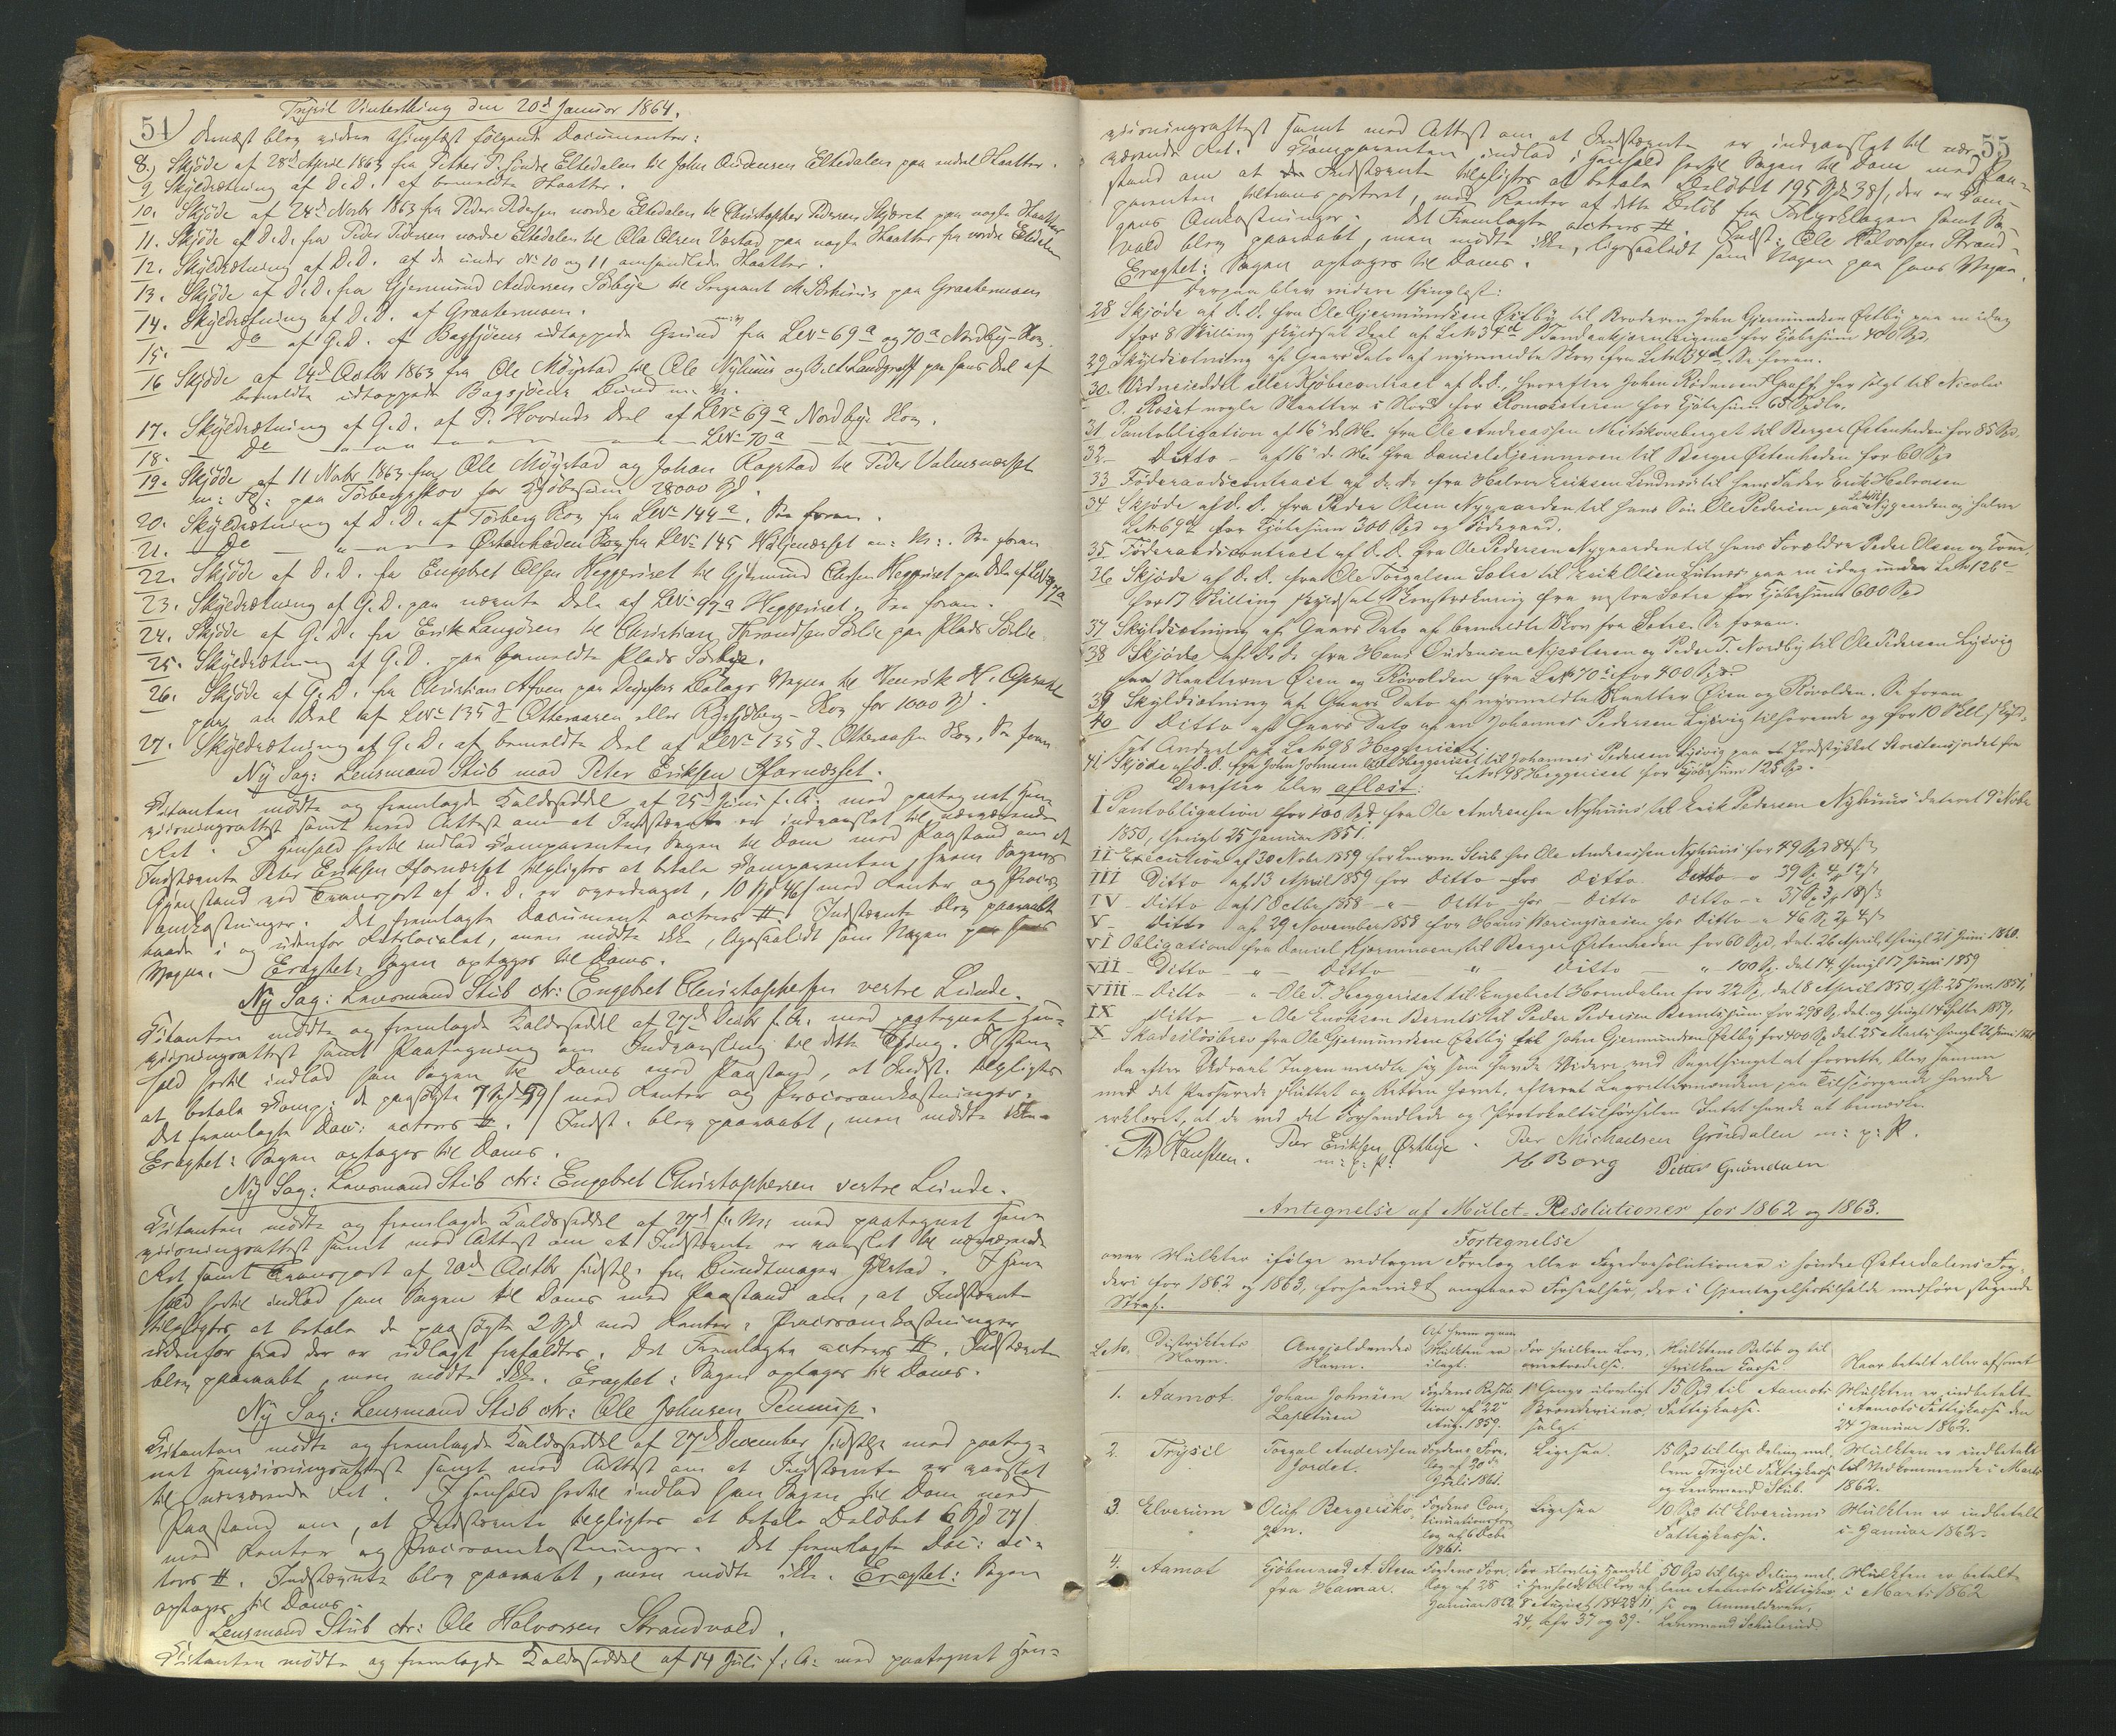 54
Trysil Vinterthing den 20d Januar 1864.
Dernæst blev videre thinglæst følgende Documenter:
8. Skjøde af 28d April 1863 fra Peter P. søndre Eltedalen til John Andersen Eltedalen paa endel Slaatter.
9. Skyldsætning af D. D. af bemeldte Slaatter.
10. Skjøde af 24d Novbr 1863 fra Peder Pedersen nordre Eltedalen til Christopher Pedersen Skjæret paa nogle Slaatter
11. Skjøde af D. D. fra Peder Pedersen nordre Eltedalen til Ola Olsen Værstad paa nogle Slaatter fra nordre Eltedalen
12. Skyldsætning af D. D. af de under No 10 og 11 omhandlede Slaatter.
13. Skjøde af D. D. fra Gjermund Andersen Sorbye til Sergeant M. paa Graatenmoen
14. Skyldsætning af D. D. af Graatenmoen.
15. — Do af G. D. af Bagsjøens udtappede Grund fra LNo 69a og 70a Nordby-Skov.
16 Skjøde af 24d Octbr 1863 fra Ole Møystad til Ole Nyhuus og paa hans Del af
bemeldte udtappede Bagsjøens Bund m. M.
17. Skyldsætning af G. D. af P. Hovruds Deel af LNo 69a Nordbye Skov.
18. — Do — LNo 70a —
19. Skjøde af 11 Novbr 1863 fra Ole Møystad og Johan Rogstad til Peder Valmsnæsset
m: Fl: paa Törbergskov for Kjøbesum 28000 Spd.
20. Skyldsætning af D. D. af Törberg Skov fra LNo 144a. Se foran.
21. — Do — Østenheden Skov fra LNo 145 m: M:. Se foran
22. Skjøde af D. D. fra Engebret Olsen Heggeriset til Gjermund Olsen Heggeriset paa Dele af LNo 97a
23. Skyldsætning af G. D. paa nævnte Dele af LNo 97a Heggeriset. Se foran.
24. Skjøde af G. D. fra Erik Langøren til Christian Throndsen Sorlie paa Plads Sorlie
25. Skyldsætning af G. D. paa bemeldte Plads
26. Skjøde af G. D. fra Christian paa Vegne til Henrik H.
paa en Deel af LNo 135 Skov for 1000 Spd.
27. Skyldsætning af G. D. af bemeldte Deel af LNo 135 Skov. Se foran
Ny Sag: Lensmand Stub mod Peter Eriksen Ffornæsset.
Citanten mødte og fremlagde Kaldsseddel af 25d Juni f. A. med paategnet Hen-
viisningsattest samt med Attest om at Indstævnte er indvarslet til nærværende
Ret. I Henhold hertil indlod Comparenten Sagen til Dom med Paastand om at
Indstævnte Peter Eriksen Ffornæsset tilpligtes at betale Comparenten, hvem Sagens
Gjenstand ved Transport af D. D. er overdraget, 10 Spd 46 s med Renter og Proces-
omkostninger. Det fremlagte Document acteres #. Indstævnte blev paaraabt
baade i og udenfor Retslocalet, men mødte ikke, ligesaalidt som Nogen paa hans
Vegne. — Eragtet: Sagen optages til Doms.
Ny Sag: Lensmand Stub ctr: Engebret Christophersen vestre Lunde.
Citanten mødte og fremlagde Kaldsseddel af 27d Decbr f. A. med paategnet Hen-
viisningsattest samt Paategning om Indvarsling til dette Thing. I Hen-
hold hertil indlod han Sagen til Doms med Paastand, at Indst. tilpligtes
at betale Comp: de paasøgte 7 Spd 59 s med Renter og Procesomkostninger.
Det fremlagte Doc: acteres #. Indst. blev paaraabt, men mødte ikke.
Eragtet: Sagen optages til Doms.
Ny Sag: Lensmand Stub ctr: Engebret Christophersen vestre Lunde.
Citanten mødte og fremlagde Kaldsseddel af 27d f. M: med paategnet Hen-
viisningsattest samt med Attest om at Indstævnte er varslet til nærværende
Ret samt Transport af 20d Octbr sidstl. fra Bundtmager Hölstad. I Hen-
hold hertil indlod han Sagen til Doms med Paastand om, at Indstævnte
tilpligtes at betale de paasøgte 2 Spd med Renter. Procesomkostninger
udenfor hvad der er udlagt frafaldtes. Det Fremlagte acteres #. Indstævnte
blev paaraabt, men mødte ikke. Eragtet: Sagen optages til Doms.
Ny Sag: Lensmand Stub ctr: Ole Johnsen
Citanten mødte og fremlagde Kaldsseddel af 27d December sidstl. med paateg-
net Henviisningsattest samt med Attest om at Indstævnte er varslet
til nærværende Ret. I Henhold hertil indlod han Sagen til Dom med
Paastand om, at Indstævnte tilpligtes at betale Beløbet 6 Spd 27 s
med Renter og Procesomkostninger. Det fremlagte Doc: ac-
teres #. Indstævnte blev paaraabt, men mødte ikke. Eragtet: Sagen
optages til Doms.
Lensmand Stub ctr: Ole Halvorsen Strandvold.
Citanten mødte og fremlagde Kaldsseddel af 14 Juli f: A: med paategnet Hen-
55
viisningsattest samt med Attest om at Indstævnte er indvarslet til nær-
værende Ret. Comparenten indlod i Henhold hertil Sagen til Dom med Paa-
stand om at Indstævnte tilpligtes at betale Beløbet 195 Spd 38 s, der er Com-
parenten tiltransporteret, med Renter af dette Beløb fra Forligsklagen samt Sa-
gens Omkostninger. Det Fremlagte acteres #. Indst: Ole Halvorsen Strand-
vold blev paaraabt, men mødte ikke, ligesaalidt som Nogen paa hans Vegne.
Eragtet: Sagen optages til Doms.
Derpaa blev videre thinglæst:
28 Skjøde af D. D. fra Ole Gjermundsen Østby til Broderen John Gjermundsen Østby paa en idag
for 8 Skilling skyldsat Deel af LNo 34d for Kjøbesum 400 Spd.
29 Skyldsætning af Gaars Dato af nysmeldte Skov fra LNo 34d. Se foran.
30. eller Kjøbecontract af D. D., hvorefter Johan Graff har solgt til Nicolai
O. Roset nogle Slaatter i Nord for Romæsteren for Kjøbesum 65 Spdlr.
31 Pantobligation af 16 d. M. fra Ole Andreassen Meitskovsberget til Berger Østenheden for 85 Spd.
32 — Ditto — af 16 d. M. fra Daniel Kjernmoen til Berger Østenheden for 60 Spd
33 Föderaadscontract af D. D. fra Halvor Eriksen Lindnæs til hans Fader Erik Halvorsen
34 Skjøde af D. D. fra Peder Olsen Nygaarden til hans Søn Ole Pedersen paa Nygaarden og halve
LNo 69a for Kjøbesum 300 Spd og Föderaad.
35 Föderaadscontract af D. D. fra Ole Pedersen Nygaarden til hans Forældre Peder Olsen og Kone.
36 Skjøde af D. D. fra Ole Torgalsen Sætre til Erik Olsen Lutnæs paa en idag under LNo 126c
for 17 Skilling skyldsat Skovstrækning fra vestre Sætre for Kjøbesum 600 Spd
37 Skyldsætning af Gaars Dato af bemeldte Skov fra Sætre. Se foran.
38 Skjøde af D. D. fra Hans Nysæteren og Peder T. Nordby til Ole Pedersen Lysvig
paa Slaatterne Öien og Rövolden fra LNo 70 for 400 Spd
39 Skyldsætning af Gaars Dato af nysmeldte Slaatter Öien og Rövolden. Se foran
40 Ditto af Gaars Dato af en Johannes Pedersen Lysvig tilhørende og for 10 Skill. skyld-
sat Andeel af LNo 98 Heggeriset
41 Skjøde af D. D. fra John Johnsen Heggeriset til Johannes Pedersen Lysvig paa Jordstykket Storstensjordet fra
LNo 98 Heggeriset for Kjøbesum 125 Spd.
Derefter blev aflæst:
I Pantobligation for 100 Spd fra Ole Andreassen Nyhuus til Erik Pedersen Nyhuus dateret 9 Novbr
1850, thingl 25 Januar 1851.
II Execution af 30 Novbr 1859 for Lensm. Stub hos Ole Andreassen Nyhuus for 49 Spd 84 s
III Ditto af 13 April 1859 for Ditto hos Ditto Ditto 39 Sp. 4 12 s
IV Ditto af Octbr 1858 — Ditto hos — Ditto Ditto 37 Sp. 3 18 s
V Ditto af 29 November 1858 for Hans hos Ditto 46 Sp 2 4 s
VI Obligation fra Daniel Kjernmoen til Berger Østenheden for 60 Spd, dat. 26 April, thingl 21 Juni 1860.
VII Ditto — Ditto — Ditto — 100 Sp. dat 14, thingl 17 Juni 1859
VIII Ditto — Ole T. Heggeriset til Engebret Horndalen for 22 Sp, dat 8 April 1850, thl. 25 Jan. 1851,
IX Ditto — Ole Enoksen Bernts til Peder Pedersen for 298 Sp. dat. og thingl 14 Septbr 1859,
X Skadesløsbrev fra Ole Gjermundsen Østby til John Gjermundsen Østby for 400 Sp dat 25 Marts, thingl 21 Juni 1860
Da efter Udraab Ingen meldte sig som havde Videre ved Sagethinget at forrette, blev samme
med det Passerede sluttet og Retten hævet, efterat Laugrettesmændene paa Tilspørgende havde
erklæret, at de ved det Forhandlede og Protokoltilførselen Intet havde at bemærke
Hansteen. Peer Eriksen Østbye m: f: P. Peer Michaelsen Gröndalen m: p: P.
H Borg Petter Gröndalen
Antegnelse af Mulct-Resolutioner for 1862 og 1863.
Fortegnelse
over Mulkter ifølge vedtagne Forelæg eller Fogedresolutioner i søndre Østerdalens Fog-
deri for 1862 og 1863, forsaavidt angaaer Forseelser, der i Gjentagelsestilfælde medføre stigende
Straf.
LNo. Distriktets Navn. Angjældendes Navn. Af hvem og naar Mulkten er ilagt. For hvilken Lov- overtrædelse. Mulktens Beløb og til hvilken Casse. Naar betalt eller afsonet
1. Aamot. Johan Johnsen Lapstuen Fogdens Resolu- tion af 22 Aug. 1859. 1ste Gangs ulovligt Brændeviins- salg. 15 Spd til Aamots Fattigkasse. Mulkten er indbetalt i Aamots Fattigkasse den 24 Januar 1862.
2. Trysil Torgal Anderssen Jordet. Fogdens Fore- læg af 30d Juli 1861. Ligesaa. 15 Spd til lige Deling mel- lem Trysil Fattigkasse og Lensmand Stub. Mulkten er indbetalt til Vedkommende i Marts 1862.
3. Elverum Oluf Bergersko- gen. Fogdens Con- fore- læg af 6 Decbr 1861. Ligesaa 10 Spd til Elverums Fattigkasse. Mulkten er indbetalt i Januar 1862.
4. Aamot Kjøbmand A. Steen fra Hamar. Fogdens Fore- læg af 28 Januar 1862 For ulovlig Handel i Henhold til Lov af 8 August 1842 §§ 11, 24, cfr 37 og 39. 50 Spd til lige Deling mel- lem Aamots Fattigkas- se og Anmelderen, Lensmand Schulerud. Mulkten er betalt i Marts 1862